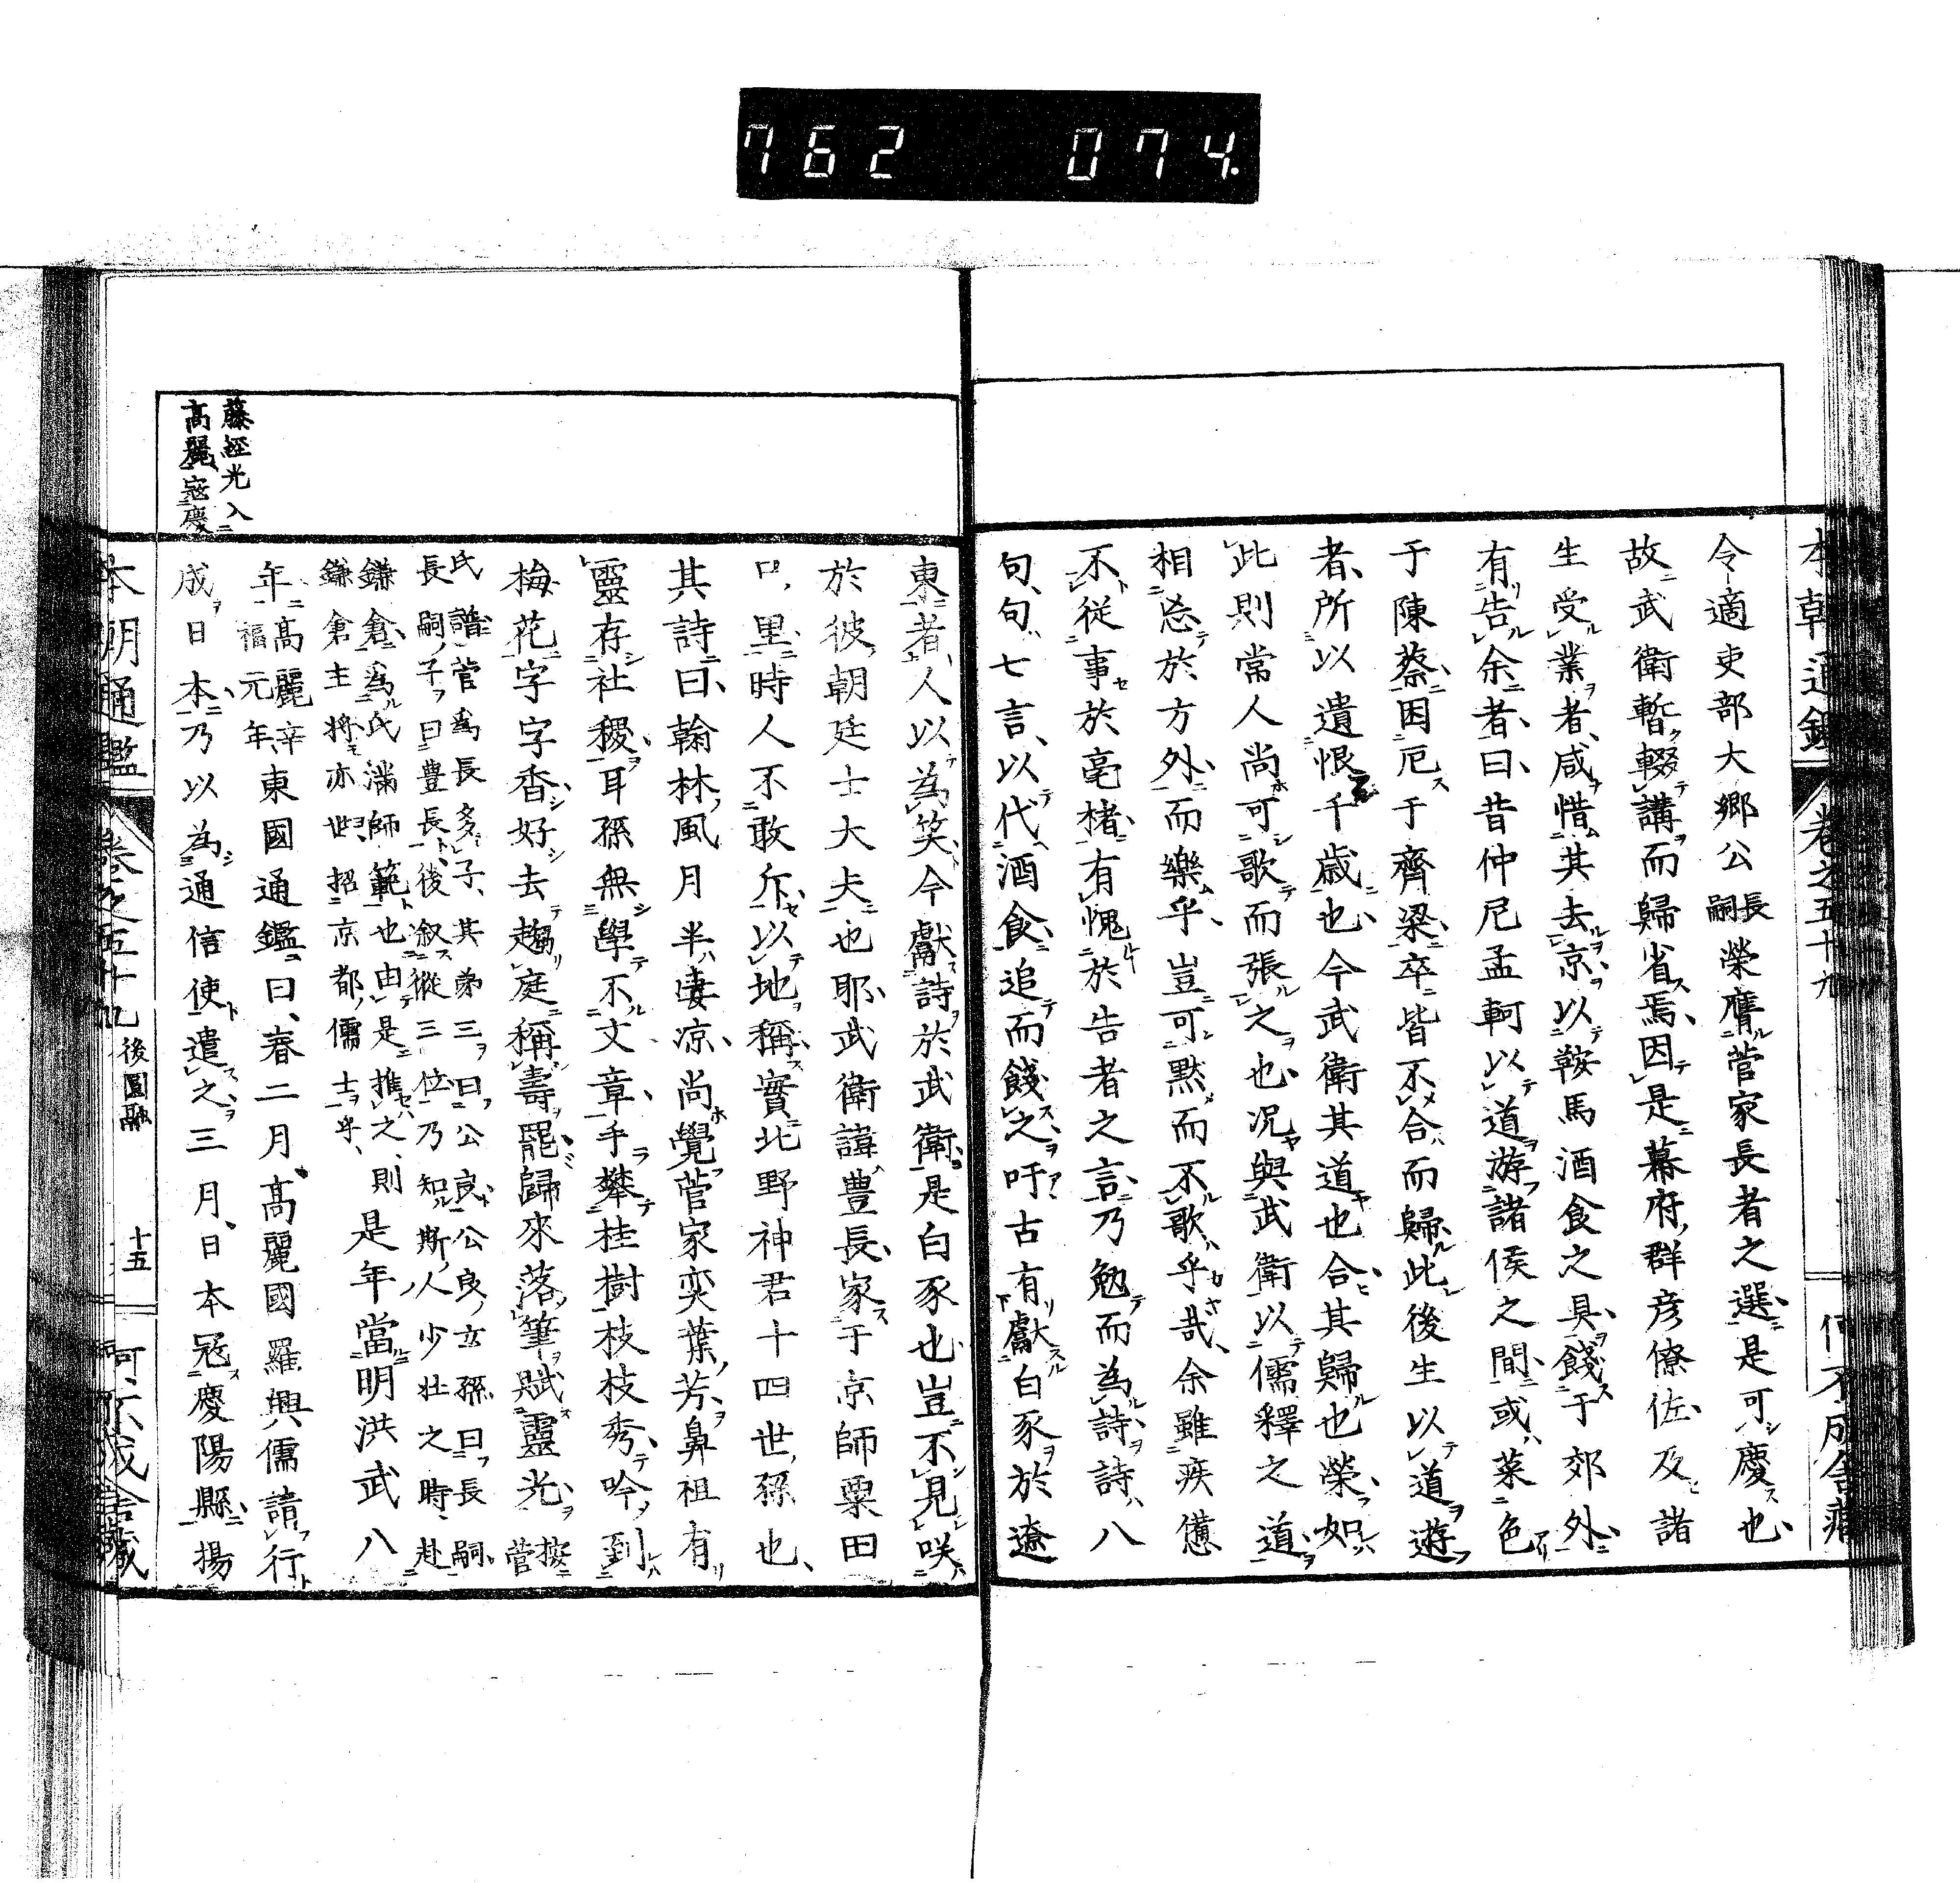 762 074.
本朝通鑑 卷之五十九
令適吏部大卿公長嗣榮膺菅家長者之選是可慶也
故武衛暫輟講而歸省焉因是幕府群彦僚佐及諸
生受業者咸惜其去京以鞍馬酒食之具餞于郊外
有告余者曰昔仲尼孟軻以道游諸侯之間或菜色
于陳蔡困厄于齊梁卒皆不合而歸此後生以道遊
者所以遺恨千歳也今武衛其道也合其歸也榮如
此則常人尚可歌而張之也况與武衛以儒釋之道
相忘於方外而樂乎豈可默而不歌乎哉余雖疾憊
不從事於毫楮有愧於告者之言乃勉而為詩詩八
句句七言以代酒食追而餞之吁古有獻白豕於遼
東者人以為笑今獻詩於武衛是白豕也豈不見咲
於彼朝廷士大夫也耶武衛諱豊長家于京師粟田
口里時人不敢斥以地稱實北野神君十四世孫也
其詩曰翰林風月半凄凉尚覺菅家奕葉芳鼻祖有
靈存社稷耳孫無學不文章手攀桂樹枝枝秀吟到
梅花字字香好去趨庭稱壽罷歸來落筆賦靈光按菅
氏譜菅為長多子其弟三曰公良公良玄孫曰長嗣
長嗣子曰豊長後叙從三位乃知斯人少壯之時赴
鎌倉為氏滿師範也由是推之則
鎌倉主將亦世招京都儒士乎
是年當明洪武八
年高麗辛禑元年東國通鑑曰春二月高麗國羅興儒請行
成日本乃以為通信使遣之三月日本冦慶陽縣揚
藤經光入
高麗冦慶
本朝通鑑 卷之五十九 後圓融 十五